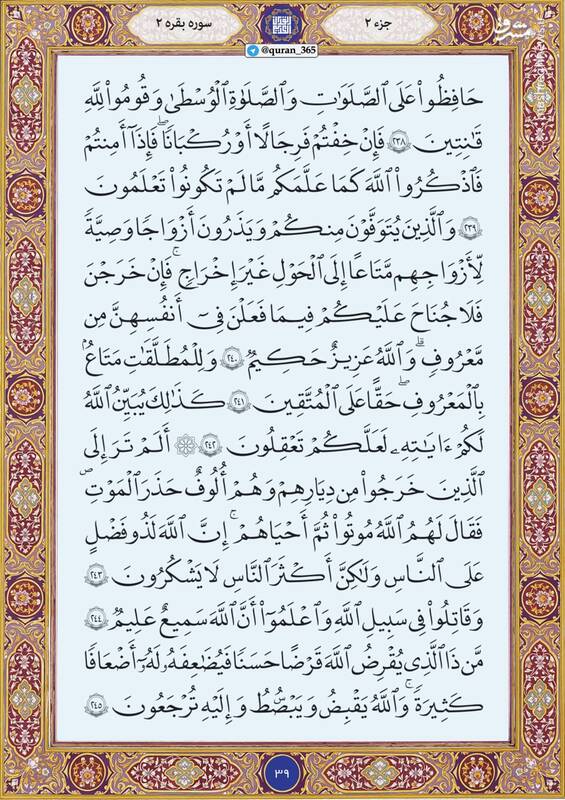 سوره بقره ٢
جزء ٢
@quran_365
مشرق
حَافِظُوا۟ عَلَى ٱلصَّلَوَٰتِ وَٱلصَّلَوٰةِ ٱلْوُسْطَىٰ وَقُومُوا۟ لِلَّهِ
قَـٰنِتِينَ ٢٣٨ فَإِنْ خِفْتُمْ فَرِجَالًا أَوْ رُكْبَانًا ۖ فَإِذَآ أَمِنتُمْ
فَٱذْكُرُوا۟ ٱللَّهَ كَمَا عَلَّمَكُم مَّا لَمْ تَكُونُوا۟ تَعْلَمُونَ
٢٣٩ وَٱلَّذِينَ يُتَوَفَّوْنَ مِنكُمْ وَيَذَرُونَ أَزْوَٰجًا وَصِيَّةً
لِّأَزْوَٰجِهِم مَّتَـٰعًا إِلَى ٱلْحَوْلِ غَيْرَ إِخْرَاجٍ ۚ فَإِنْ خَرَجْنَ
فَلَا جُنَاحَ عَلَيْكُمْ فِى مَا فَعَلْنَ فِىٓ أَنفُسِهِنَّ مِن
مَّعْرُوفٍ ۗ وَٱللَّهُ عَزِيزٌ حَكِيمٌ ٢٤٠ وَلِلْمُطَلَّقَـٰتِ مَتَـٰعٌۢ
بِٱلْمَعْرُوفِ ۖ حَقًّا عَلَى ٱلْمُتَّقِينَ ٢٤١ كَذَٰلِكَ يُبَيِّنُ ٱللَّهُ
لَكُمْ ءَايَـٰتِهِۦ لَعَلَّكُمْ تَعْقِلُونَ ٢٤٢ ۞ أَلَمْ تَرَ إِلَى
ٱلَّذِينَ خَرَجُوا۟ مِن دِيَـٰرِهِمْ وَهُمْ أُلُوفٌ حَذَرَ ٱلْمَوْتِ
فَقَالَ لَهُمُ ٱللَّهُ مُوتُوا۟ ثُمَّ أَحْيَـٰهُمْ ۚ إِنَّ ٱللَّهَ لَذُو فَضْلٍ
عَلَى ٱلنَّاسِ وَلَـٰكِنَّ أَكْثَرَ ٱلنَّاسِ لَا يَشْكُرُونَ ٢٤٣
وَقَـٰتِلُوا۟ فِى سَبِيلِ ٱللَّهِ وَٱعْلَمُوٓا۟ أَنَّ ٱللَّهَ سَمِيعٌ عَلِيمٌ ٢٤٤
مَّن ذَا ٱلَّذِى يُقْرِضُ ٱللَّهَ قَرْضًا حَسَنًا فَيُضَـٰعِفَهُۥ لَهُۥٓ أَضْعَافًا
كَثِيرَةً ۚ وَٱللَّهُ يَقْبِضُ وَيَبْصُۜطُ وَإِلَيْهِ تُرْجَعُونَ ٢٤٥
٣٩